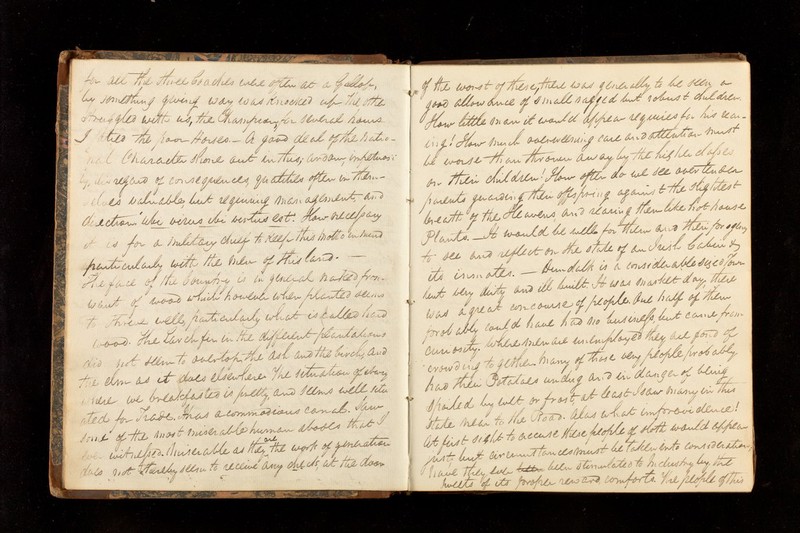 for all the three Coaches were often at a Gallop,
by something giving way was knocked up the other
struggled with us, the Champion, for several hours.
I pitied the poor Horses. — A good deal of the natio-
nal Character shone out in this; ardour, impetuosi-
ty, disregard of consequences, qualities often in them-
selves valuable, but requiring management and
direction. ubi virus ibi virtus est. How necessary
it is for a military chief to keep this motto in mind
particularly with the men of this land. —
The face of the Country is in general naked from
want of wood which however when planted seems
to thrive well, particularly what is called hard
wood. The larch fir in the different plantations
did not seem to overtop the ash and the birch, and
the elm as it does elsewhere. The situation of
where we breakfasted is pretty, and seems well situ
ated for Trade. It has a commodious canal. Saw
some of the most miserable human abodes that I
ever witnessed. Miserable as they are the work of generation
does not thereby seem to receive any check, at the door
of the worst of these, there was generally to be seen a
good allowance of small ragged but robust children
How little man it would appear requires for his rear-
ing! How much overweening care and attention must
be worse than thrown away by the higher classes
on their children! How often do we see over tender
parents guarding their offspring against the slightest
breath of the Heavens, and rearing them like hot house
Plants. — It would be well for them and their progeny
to see and reflect on the state of an Irish Cabin &
its inmates. — Dundalk is a considerable sized Town
but very dirty and ill built. It was market day, there
was a great concourse of people. One half of them
probably could have had no business, but came from
curiosity. Where men are unemployed they are fond of
crowding together. Many of these very people probably
had their Potatoes undug and in danger of being
spoiled by wet or frost, at least I saw many in this
state near to the Road. Alas what improvidence!
At first sight to accuse these people of sloth would appear
just, but circumstances must be taken into consideration,
have they ever been stimulated to Industry by the
sweets of its proper reward comforts. The people of this